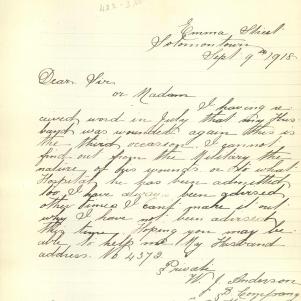 Emma Street
Solomontown
Sept 9th 1918.
Dear Sir
or Madam
I having re
ceived word in July that my Hus
band was wounded again this is
the third occasion. I cannot
find out from the Military the
nature of his wounds or to what
Hospital he has been admitted
too I have always been adersed
other times I cant make out
why I have not been adersed
this time. Hoping you may be
able to help me My Husband
address. No 4372
Private
W. J. Anderson
B Company